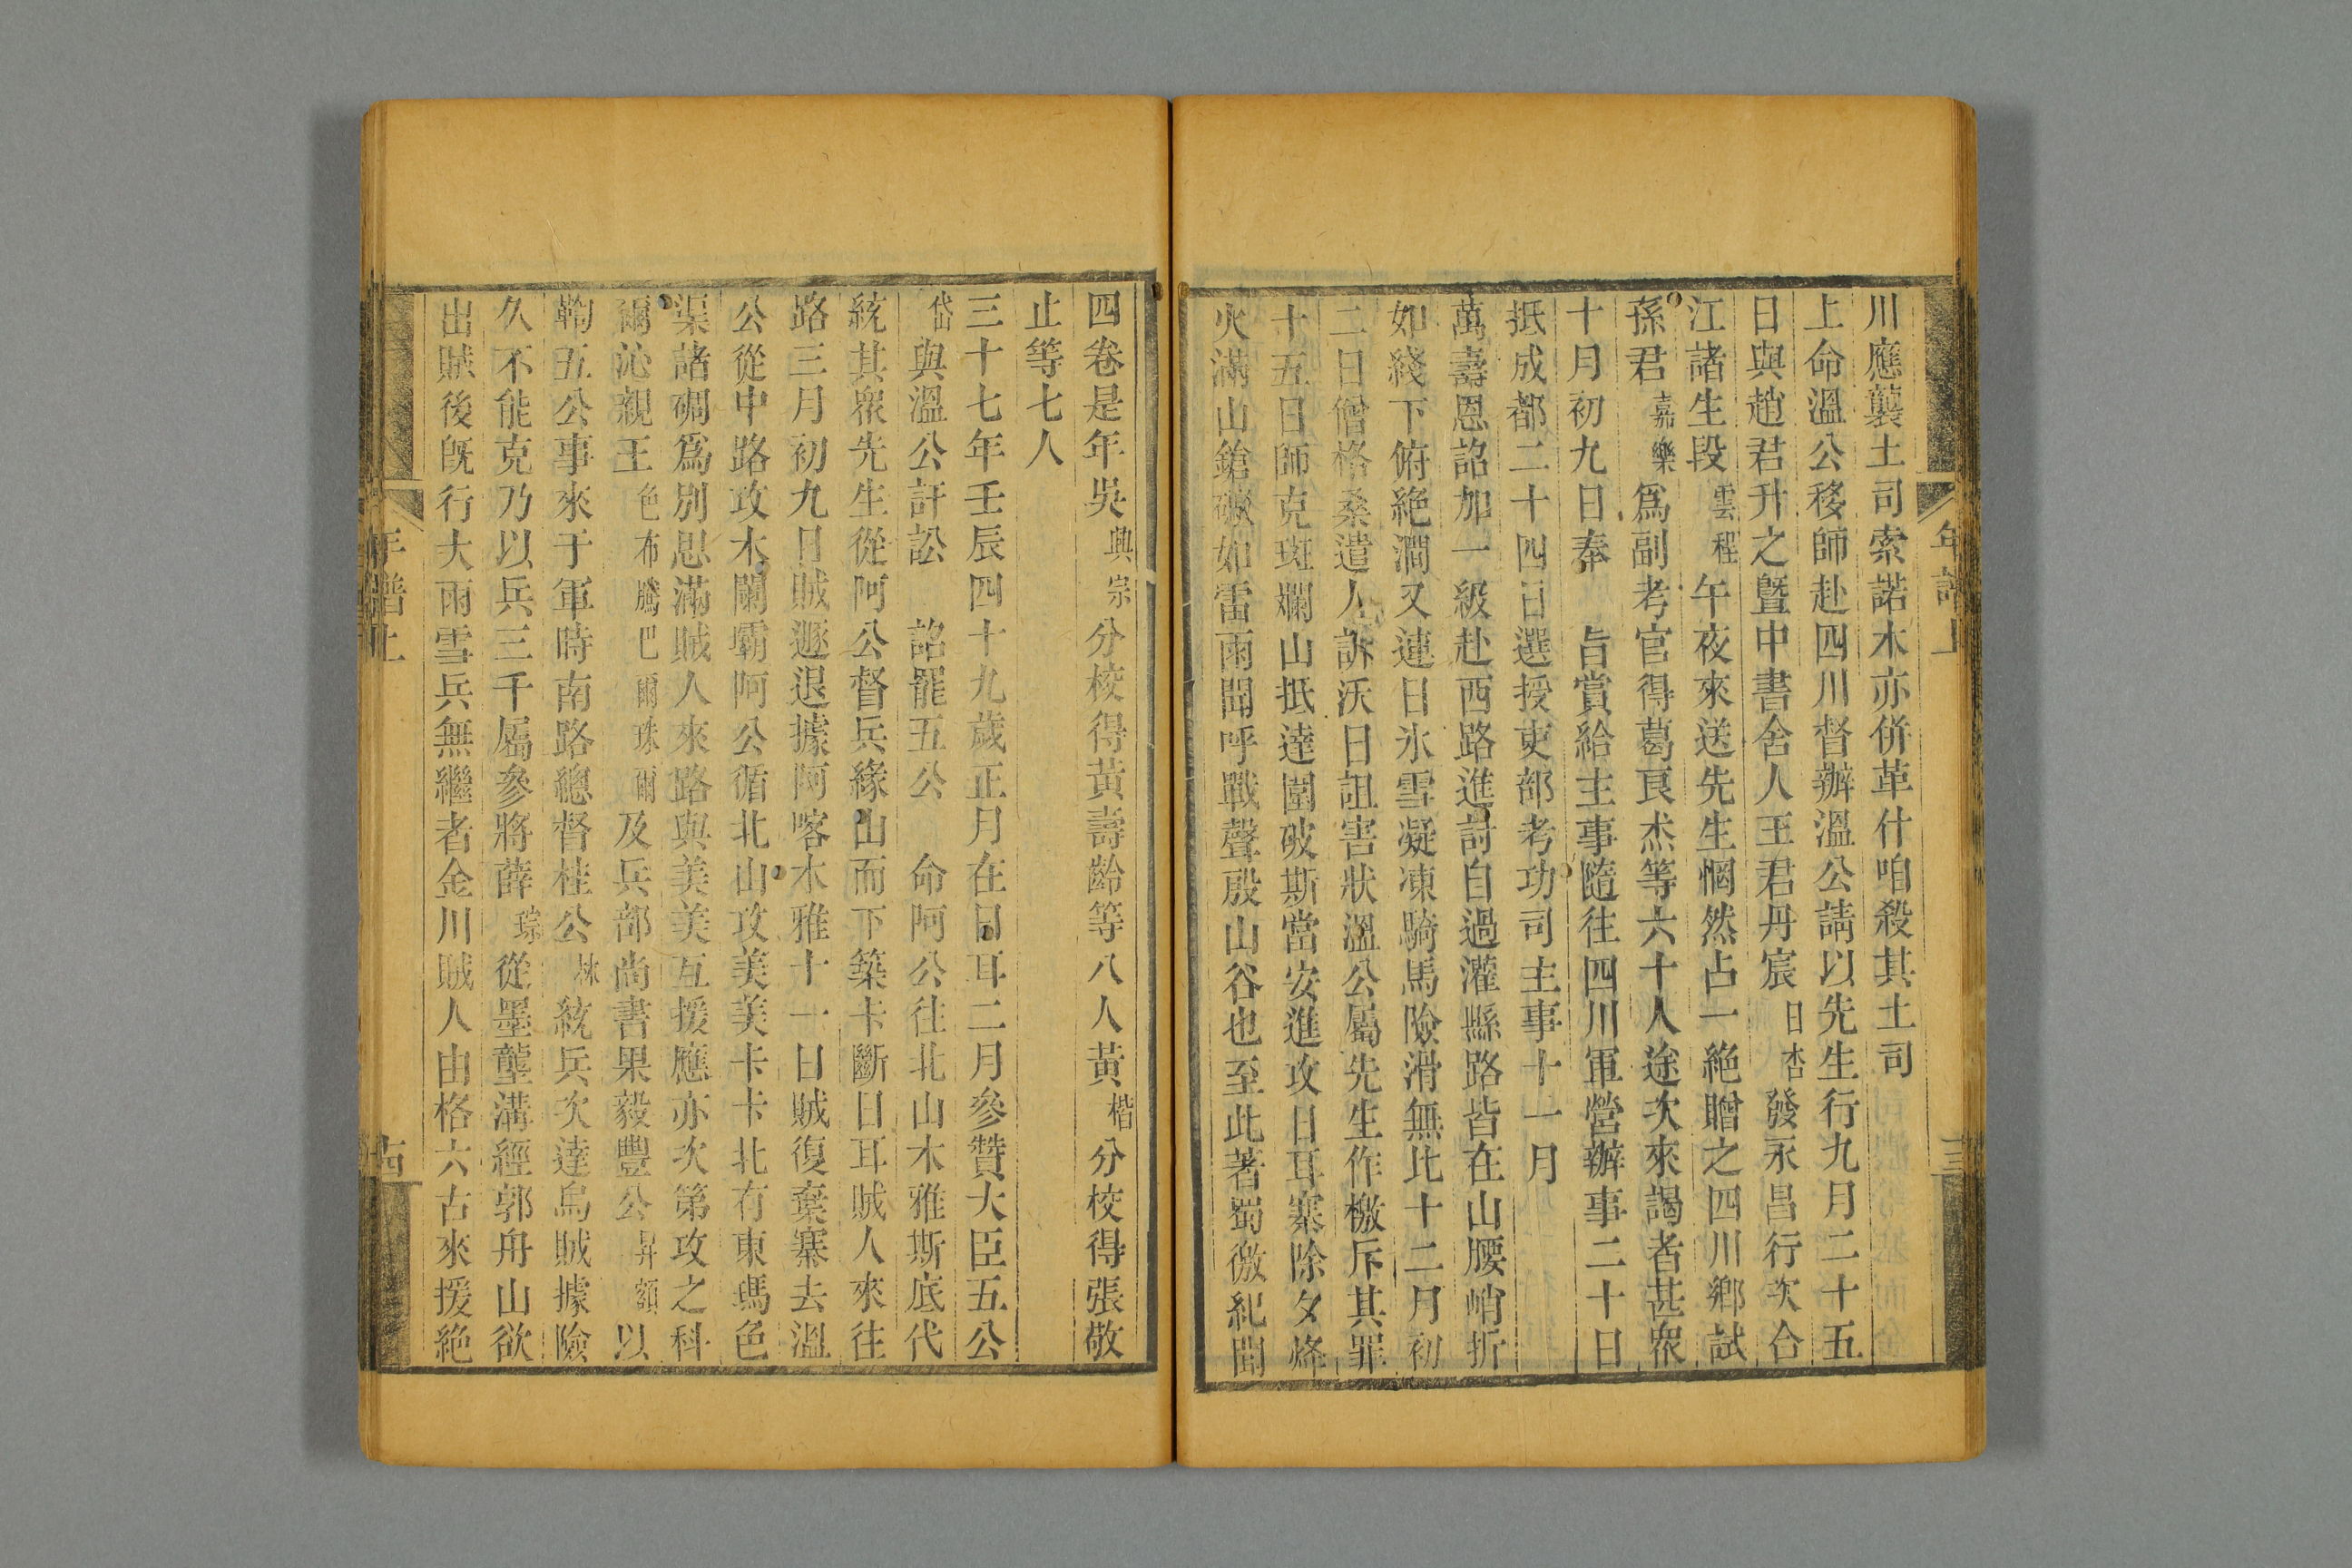 年譜上
十三
川應襲土司索諾木亦併革什咱殺其土司
上命溫公移師赴四川督辦溫公請以先生行九月二十五
日與趙君升之曁中書舍人王君丹宸日杏發永昌行次合
江諸生段雲程午夜來送先生惘然占一絕贈之四川鄉試
孫君嘉樂爲副考官得葛良杰等六十人途次來謁者甚眾
十月初九日奉　旨賞給主事隨往四川軍營辦事二十日
抵成都二十四日選授吏部考功司主事十一月
萬壽恩詔加一級赴西路進討自過灌縣路皆在山腰峭折
如綫下俯絶澗又連日氷雪凝凍騎馬險滑無比十二月初
二日僧格桑遣人訴沃日詛害狀溫公屬先生作檄斥其罪
十五日師克斑斕山抵達圍破斯當安進攻日耳寨除夕烽
火滿山鎗礮如雷雨聞呼戰聲殷山谷也至此著蜀徼紀聞
四卷是年吳興宗分校得黃壽齡等八人黃楷分校得張敬
止等七人
三十七年壬辰四十九歲正月在日耳二月參贊大臣五公
岱與溫公訐訟　詔罷五公　命阿公往北山木雅斯底代
統其眾先生從阿公督兵緣山而下築卡斷日耳賊人來往
路三月初九日賊遯退據阿喀木雅十一日賊復棄寨去溫
公從中路攻木闌壩阿公循北山攻美美卡卡北有東瑪色
渠諸碉爲別思滿賊人來路與美美互援應亦次第攻之科
爾沁親王色布騰巴爾珠爾及兵部尚書果毅豐公昇額以
鞫五公事來于軍時南路總督桂公林統兵次達烏賊據險
久不能克乃以兵三千屬參將薛琮從墨壟溝經郭舟山欲
出賊後旣行大雨雪兵無繼者金川賊人由格六古來援絶
年譜上
十四